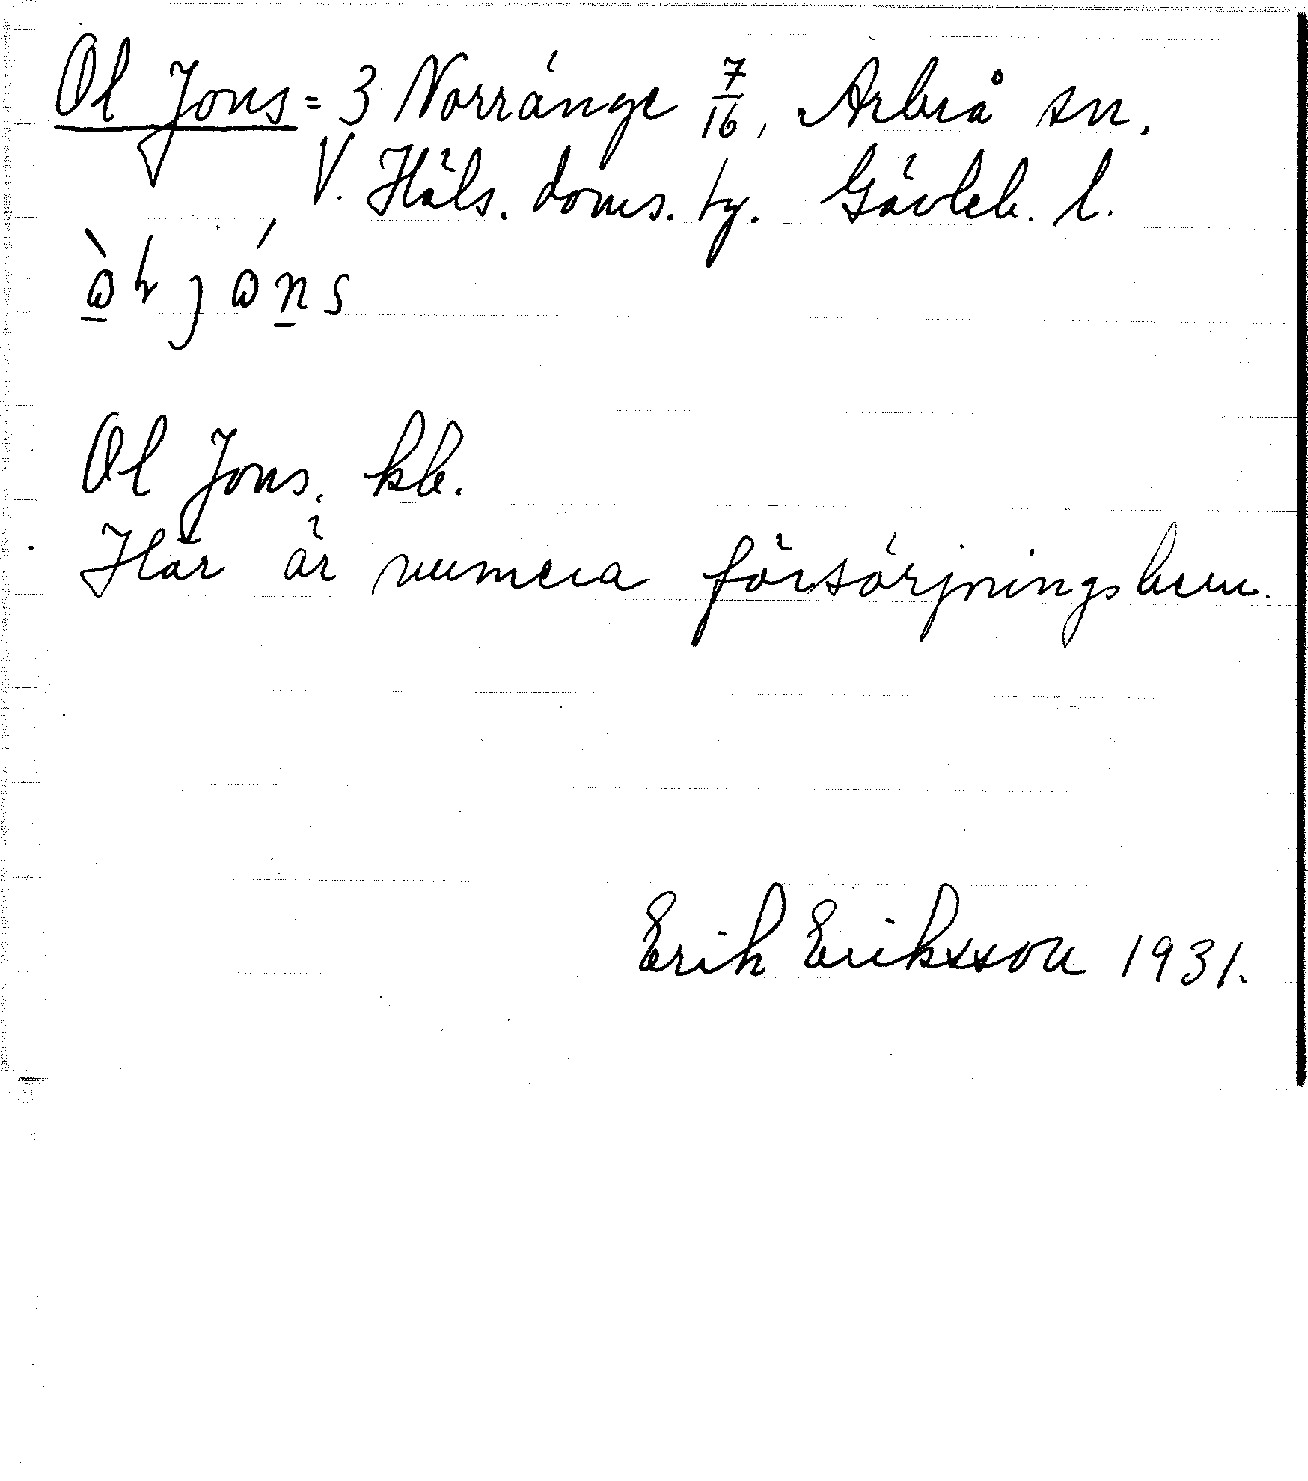 Ol Jons = 3 Norränge 7/16, Arbrå sn.
V. Häls. doms. hg. Gävleb. l.
Ol Jons. kb.
Här är numera försörjningshem.
Erik Eriksson 1931.